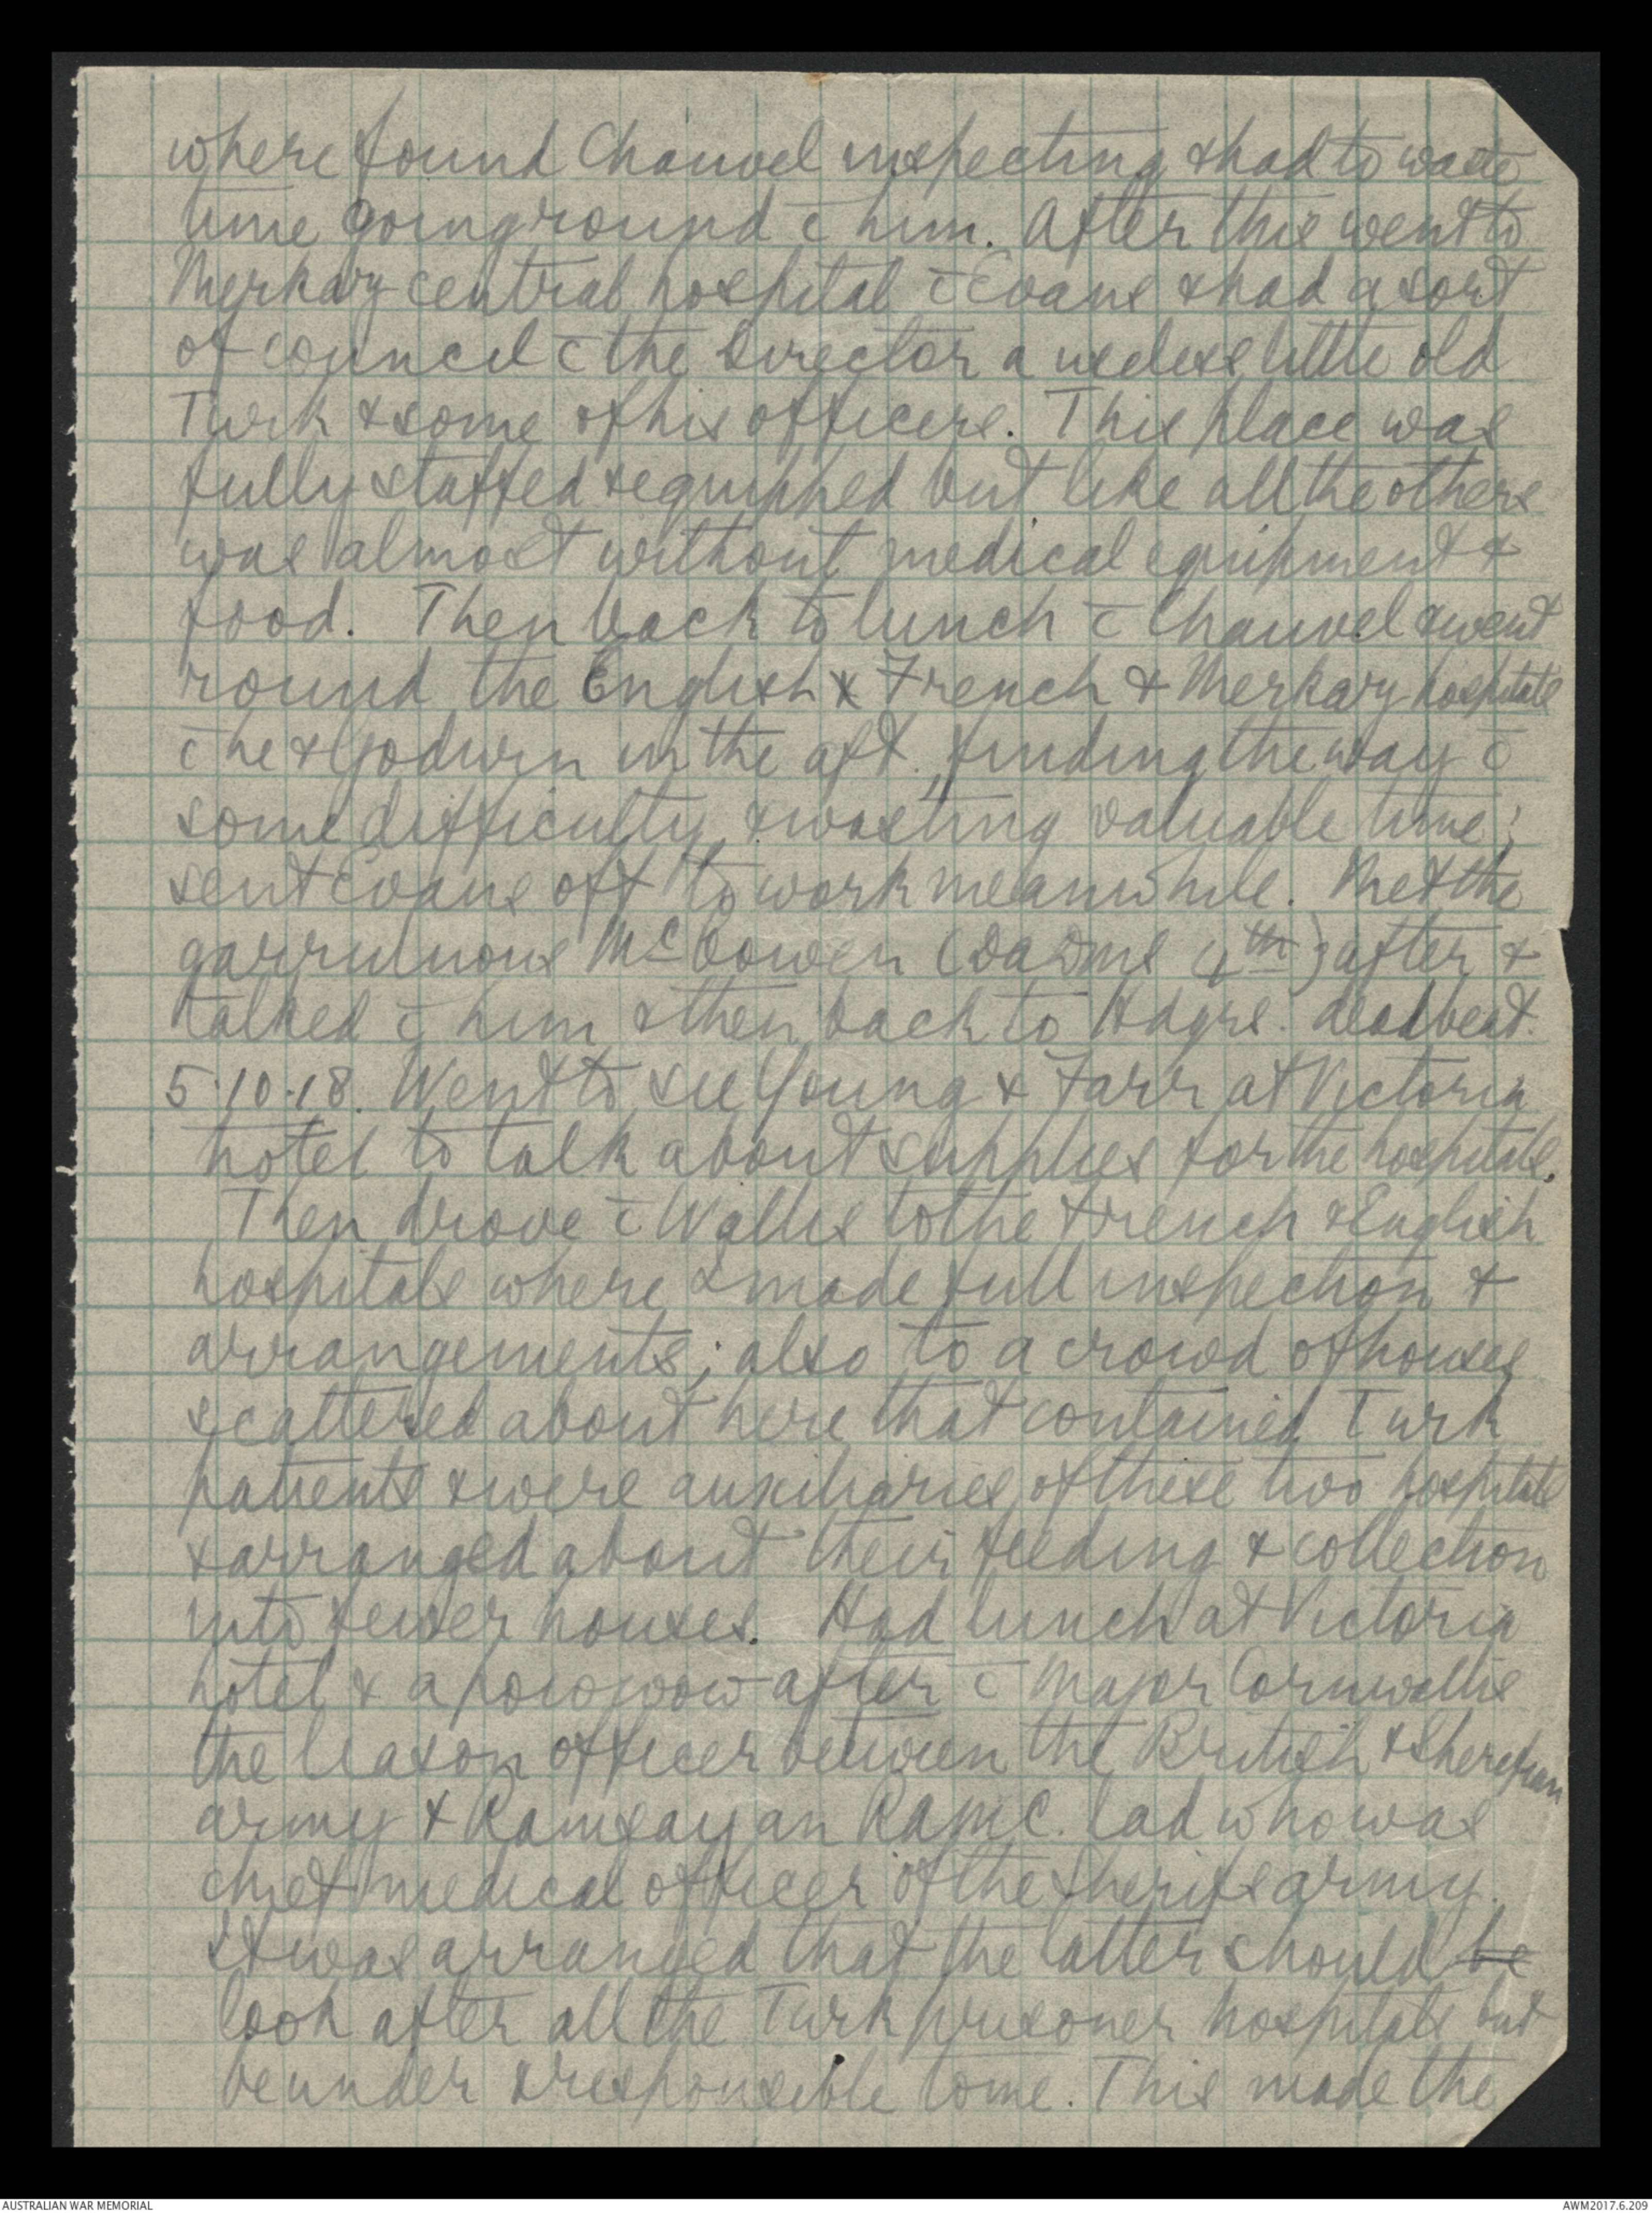 where found Chauvel inspecting & had to waste
time going round c̄ him. After this went to
Merkazy central hospital c̄ Evans & had a sort
of council c̄ the Director a useless little old
Turk & some of his officers. This place was
fully staffed & equipped but like all the others
was almost without medical equipment &
food. Then back to lunch c̄ Chauvel & went
round the English & French & Merkazy hospitals
c̄ he & Godwin in the aft. finding the way c̄
some difficulty & wasting valuable time;
sent Evans off to work meanwhile. Met the
garrulous McCowen (DADMS 4th) after &
talked c̄ him & then back to Hdqrs. dead beat.
5.10.18. Went to see Young & Farr at Victoria
hotel to talk about supplies for the hospitals.
Then drove c̄ Wallis to the French & English
hospitals where I made full inspection &
arrangements; also to a crowd of houses
scattered about here that contained Turk
patients & were auxiliaries of these two hospitals
& arranged about their feeding & collection
into fewer houses. Had lunch at Victoria
hotel & a powwow after c̄ Major Cornwallis
the liason officer between the British & Sherefian
army & Ramsay an RAMC. lad who was
chief medical officer of the Sherifs army.
It was arranged that the latter should be
look after all the Turk prisoner hospitals but
be under & responsible to me. This made the
AUSTRALIAN WAR MEMORIAL
AWM2017.6.209